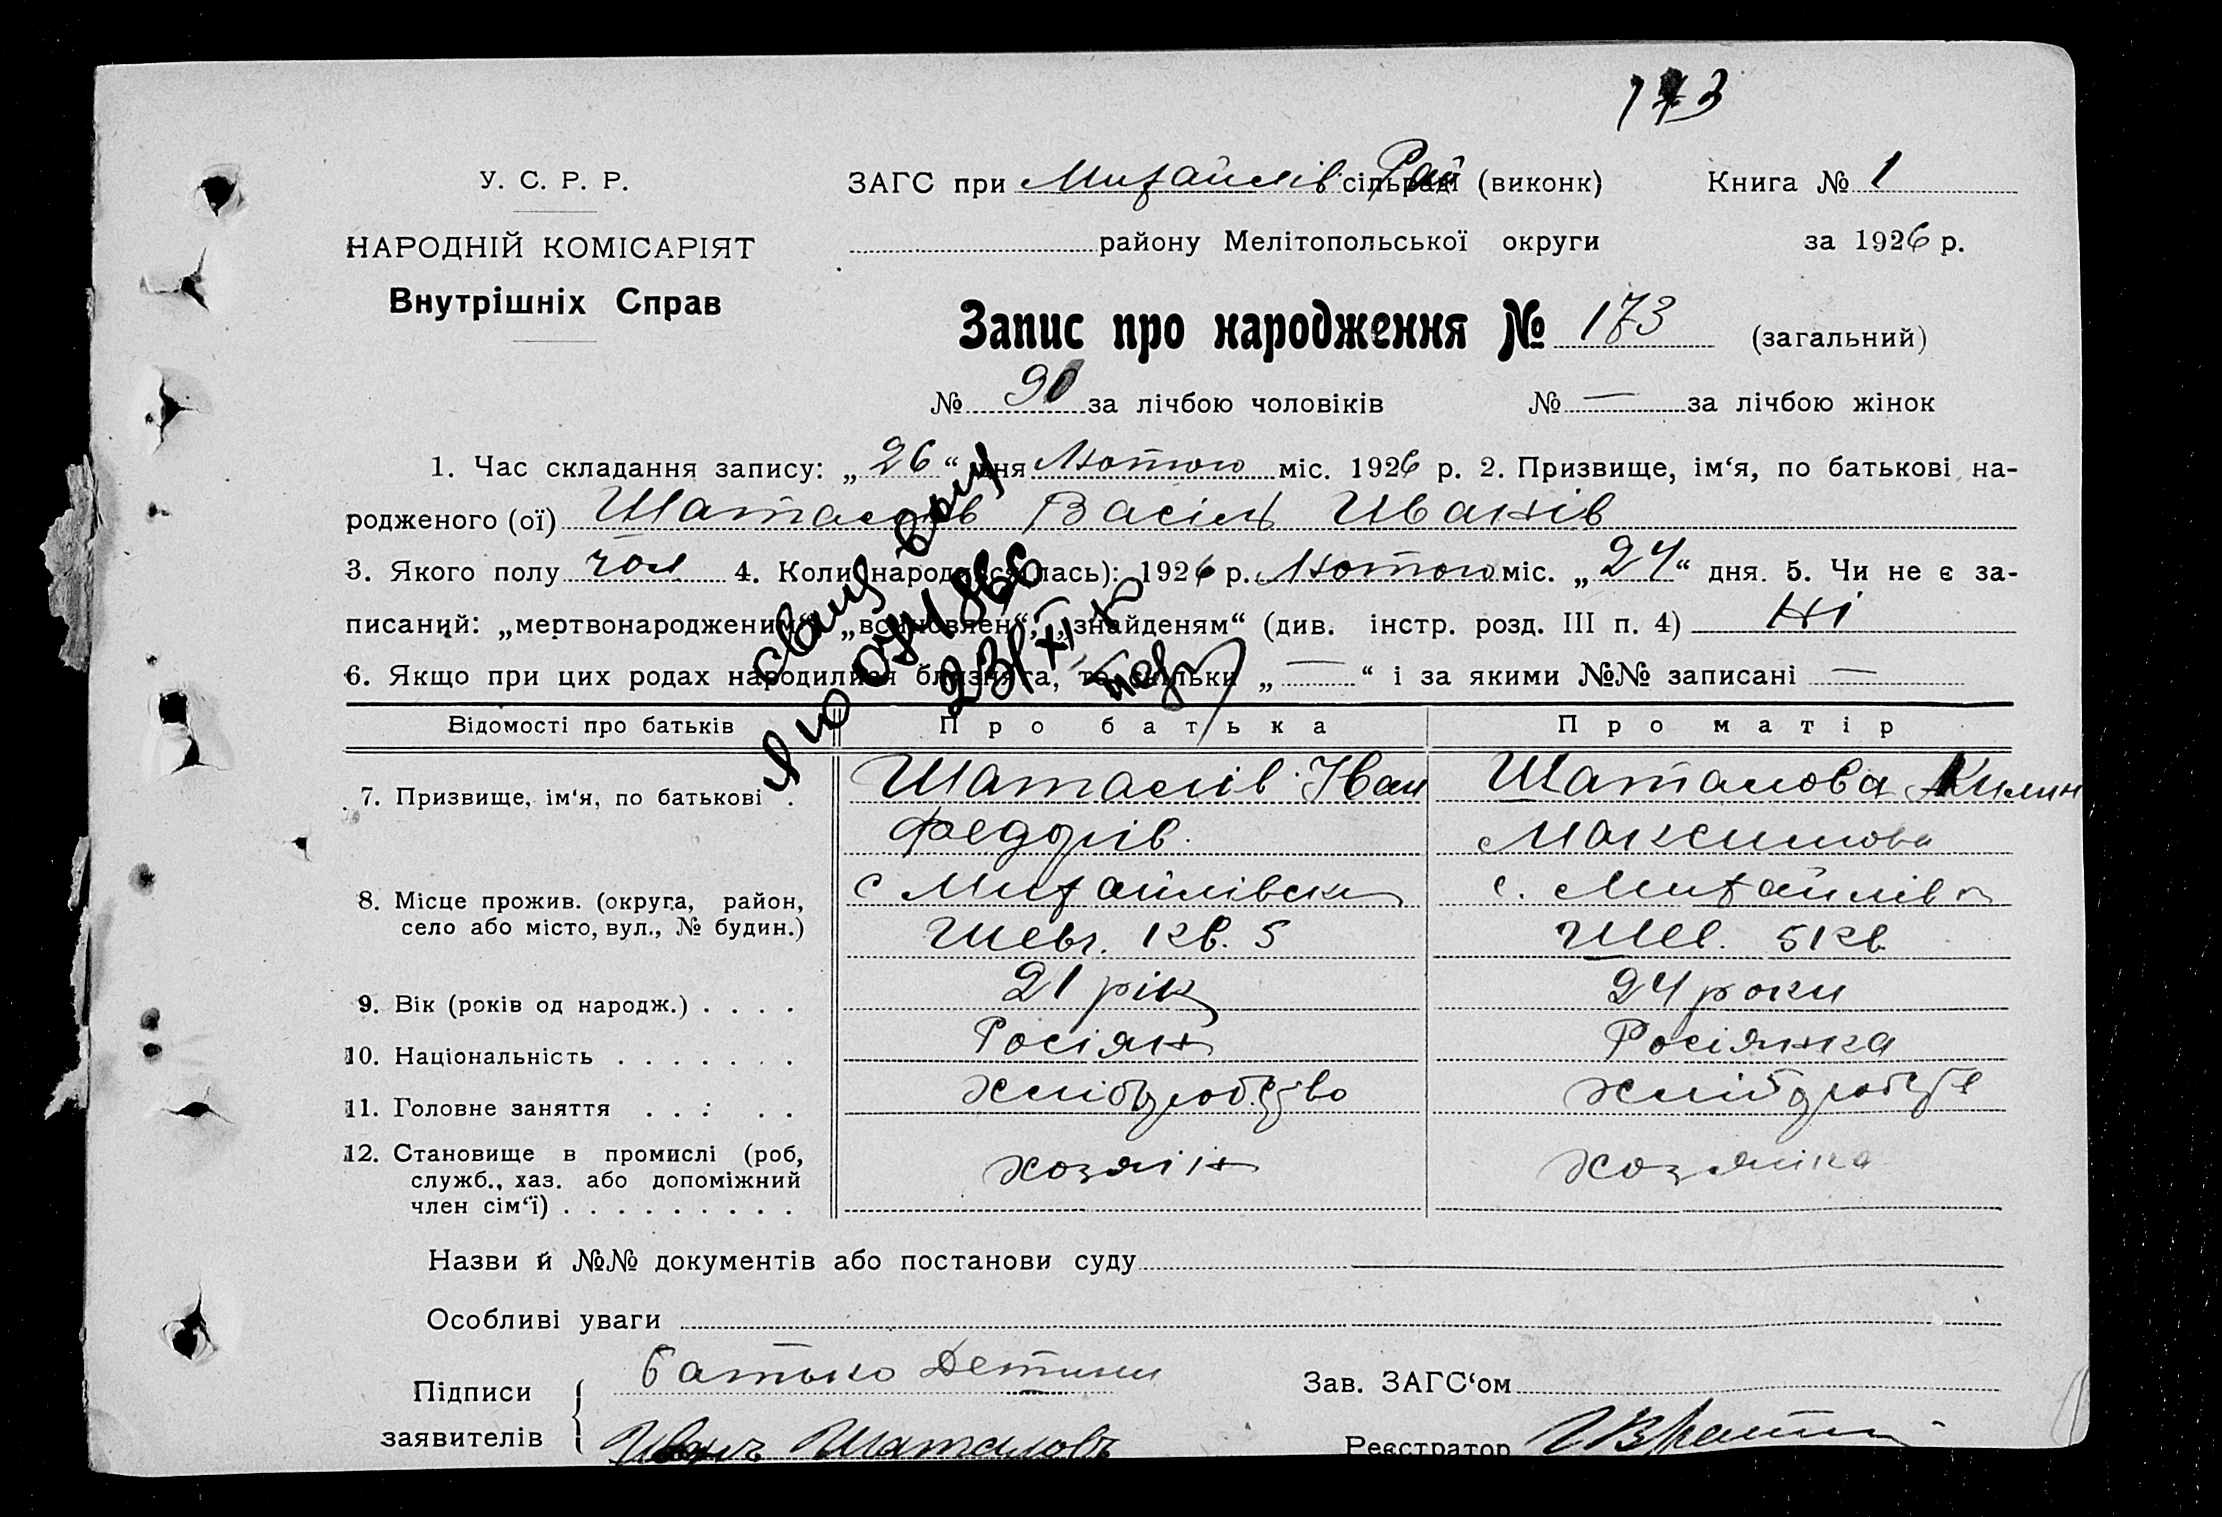 173
У. С. Р. Р.
НАРОДНІЙ КОМІСАРІЯТ
Внутрішніх Справ
ЗАГС при Михайлів сільраді Рай (виконк) Книга № 1
району Мелітопольської округи за 1926 р.
Запис про народження № 173 (загальний)
№ 90 за лічбою чоловіків № — за лічбою жінок
1. Час складання запису: „26“ дня Лютого міс. 1926 р. 2. Призвище, ім‘я, по батькові на-
родженого (ої) Шаталов Васіль Иванів
3. Якого полу чол 4. Коли народився (лась): 1926 р. Лютого міс. „24“ дня. 5. Чи не є за-
писаний: „мертвонародженим“, „всиновлен“, „знайденям“ (див. інстр. розд. III п. 4) Ні
6. Якщо при цих родах народилися близнята, то скільки „—“ і за якими №№ записані —
Відомості про батьків Про батька Про матір
7. Призвище, ім‘я, по батькові . Шаталів Іван Шаталова Килин
Федорів. Максимова
8. Місце прожив. (округа, район, с Михайлівськ с. Михайлівк
село або місто, вул., № будин.) Шевч. кв. 5 Шев. 5 кв
9. Вік (років од народж.) . . . . 21 рік 24 роки
10. Національність . . . . . . . Росіян Росіянка
11. Головне заняття . . . . . хліборобство хлібороб
12. Становище в промислі (роб,
служб., хаз. або допоміжний хозяін хозяіка
член сім‘ї) . . . . . . . . .
Назви й №№ документів або постанови суду
Особливі уваги
Підписи батько Детини Зав. ЗАГС‘ом
заявителів Иванъ Шаталовъ Реєстратор